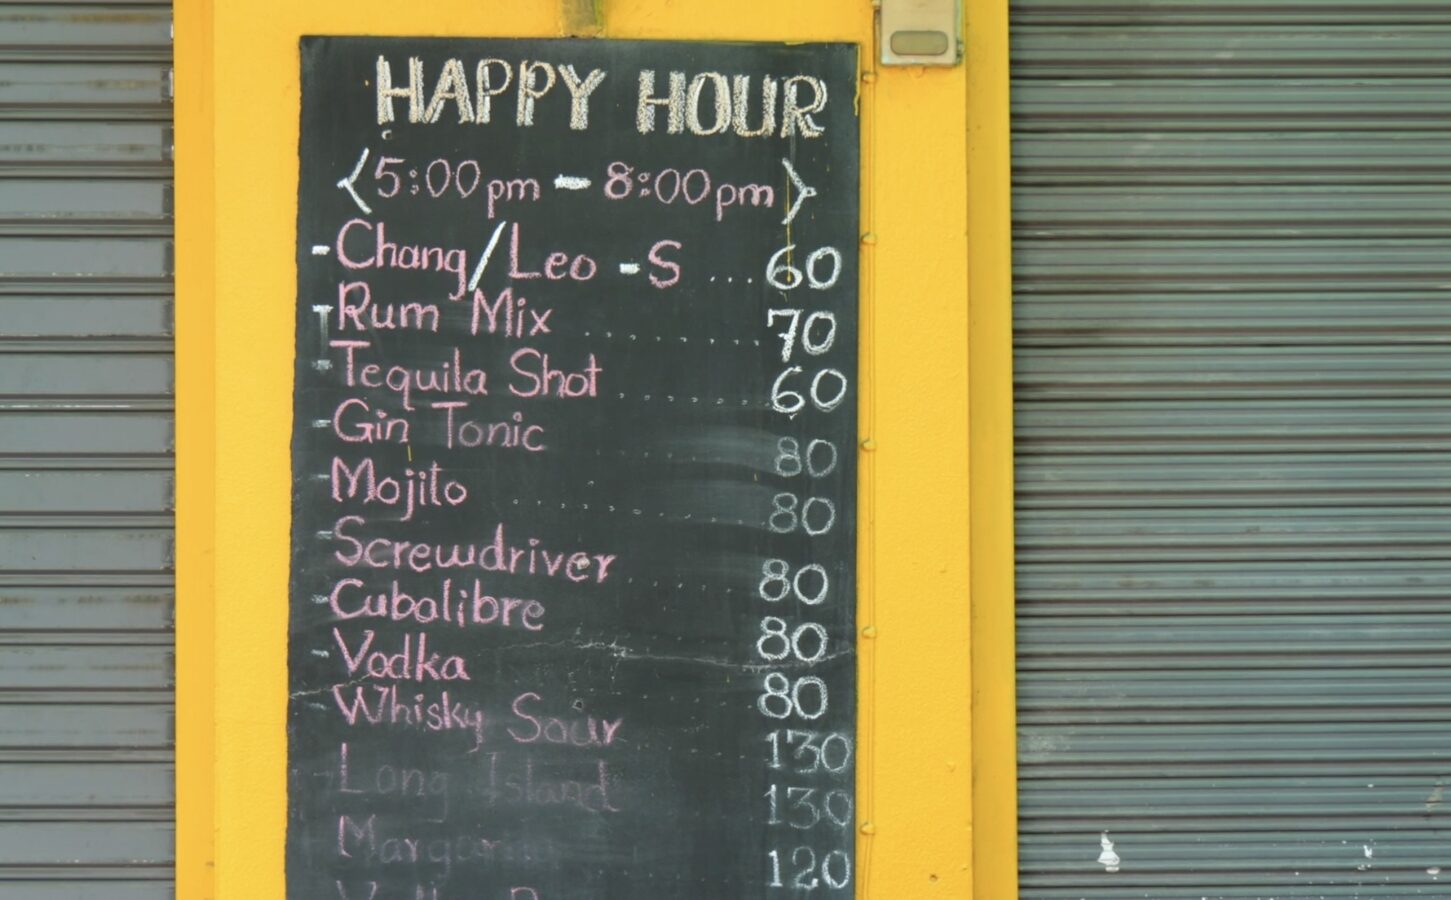 HAPPY HOUR
<5:00pm - 8:00pm>
-Chang/Leo -S ...60
-Rum Mix ........ 70
-Tequila Shot ....... 60
-Gin Tonic ....... 80
-Mojito ........... 80
-Screwdriver ...... 80
-Cubalibre ....... 80
-Vodka ....... 80
-Whisky Sour .... 130
Long Island 130
120